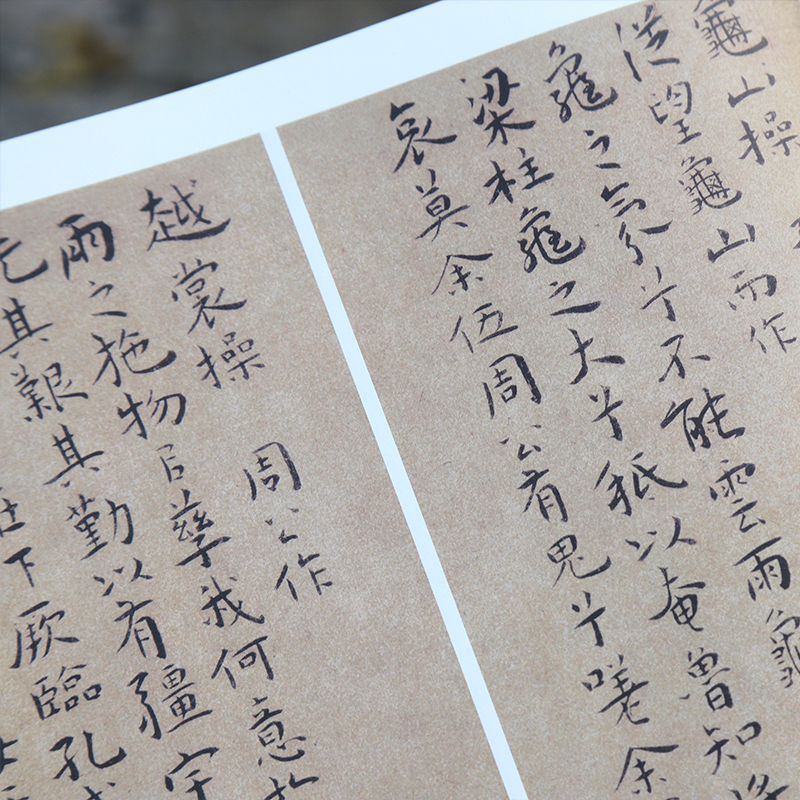 龜山操
從望龜山而作
龜之氛兮不能雲雨龜
梁柱龜之大兮秖以奄魯知將
哀莫余伍周公有鬼兮嗟余
越裳操 周公作
雨之施物㠯孳我何意於
先其艱其勤以有疆宇
在下厥臨孔